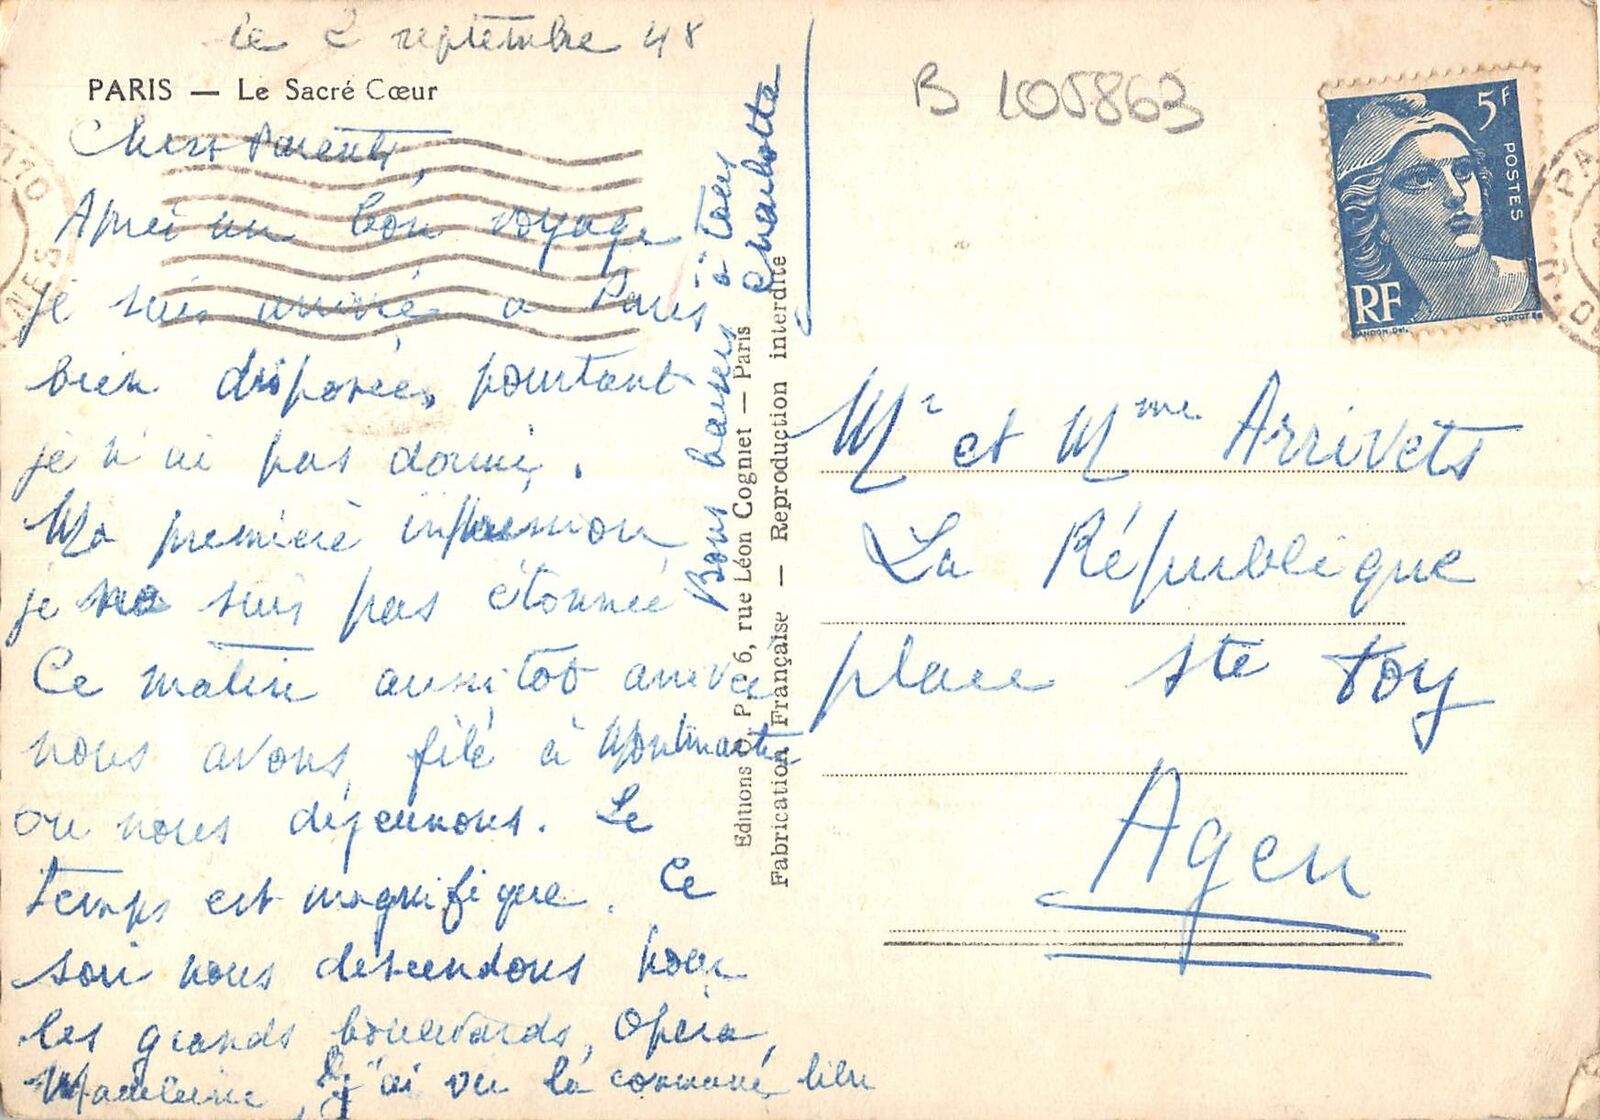 le 2 septembre 48
PARIS — Le Sacré Cœur
Chers Parents,
Après un bon voyage
je suis arrivée a Paris
bien disposée, pourtant
je n'ai pas dormi.
Ma première impression
je ne suis pas étonnée
Ce matin aussitot arrivée
nous avons filé à Montmartre
ou nous déjeunons. Le
temps est magnifique. Ce
soir nous descendons pour
les grands boulevards, Opéra,
Madeleine, j'ai vu la commune libre
Bons baisers à tous
Charlotte
Editions C. A. P. 6, rue Léon Cogniet — Paris
Fabrication Française — Reproduction interdite
B 105863
5F
POSTES
RF
GANDON DEL.
CORTOT SC
PA
Mr et Mme Arrivets
La République
place Ste Foy
Agen